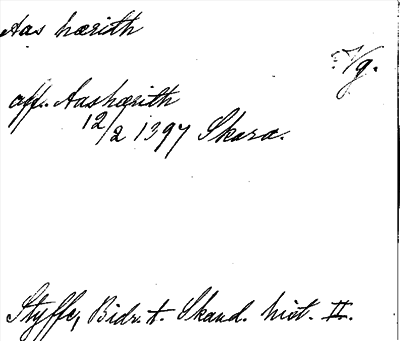 Aas hærith
Vg.
aff. Aashærith
12/2 1397 Skara.
Styffe, Bidr. t. Skand. hist. II.